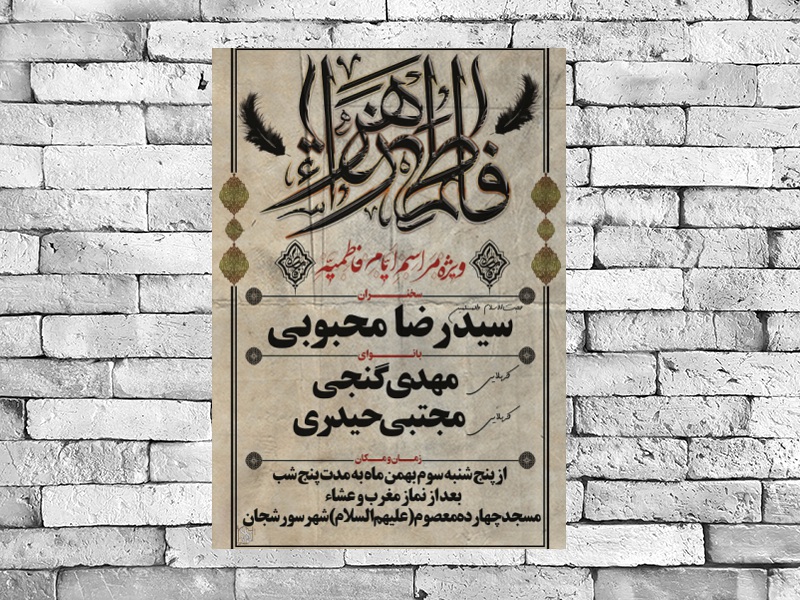 فاطمة زهراء
ویژه مراسم ایام فاطمیه
سخنران
حجت الاسلام والمسلمین
سیدرضا محبوبی
بانوای
کربلایی مهدی گنجی
کربلایی مجتبی حیدری
زمان و مکان
از پنج شنبه سوم بهمن ماه به مدت پنج شب
بعد از نماز مغرب و عشاء
مسجد چهارده معصوم (علیهم السلام) شهر سورشجان